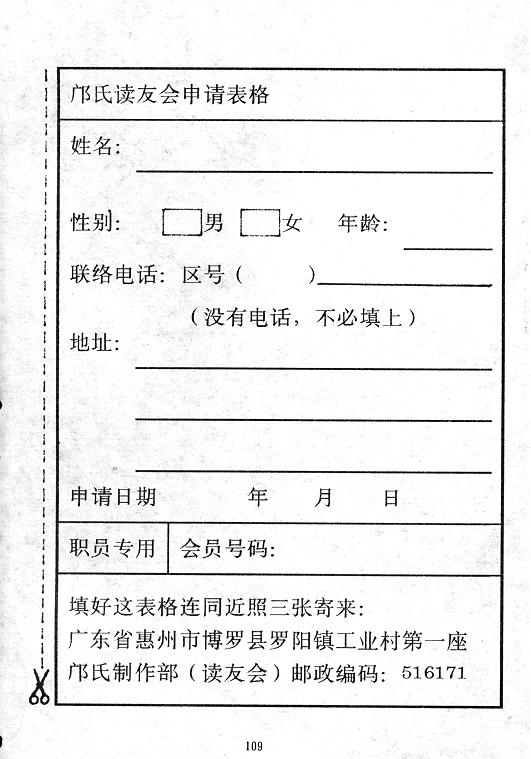 邝氏读友会申请表格
姓名:
性别: 男 女 年龄:
联络电话: 区号( )
(没有电话, 不必填上)
地址:
申请日期 年 月 日
职员专用 会员号码:
填好这表格连同近照三张寄来:
广东省惠州市博罗县罗阳镇工业村第一座
邝氏制作部(读友会)邮政编码: 516171
109